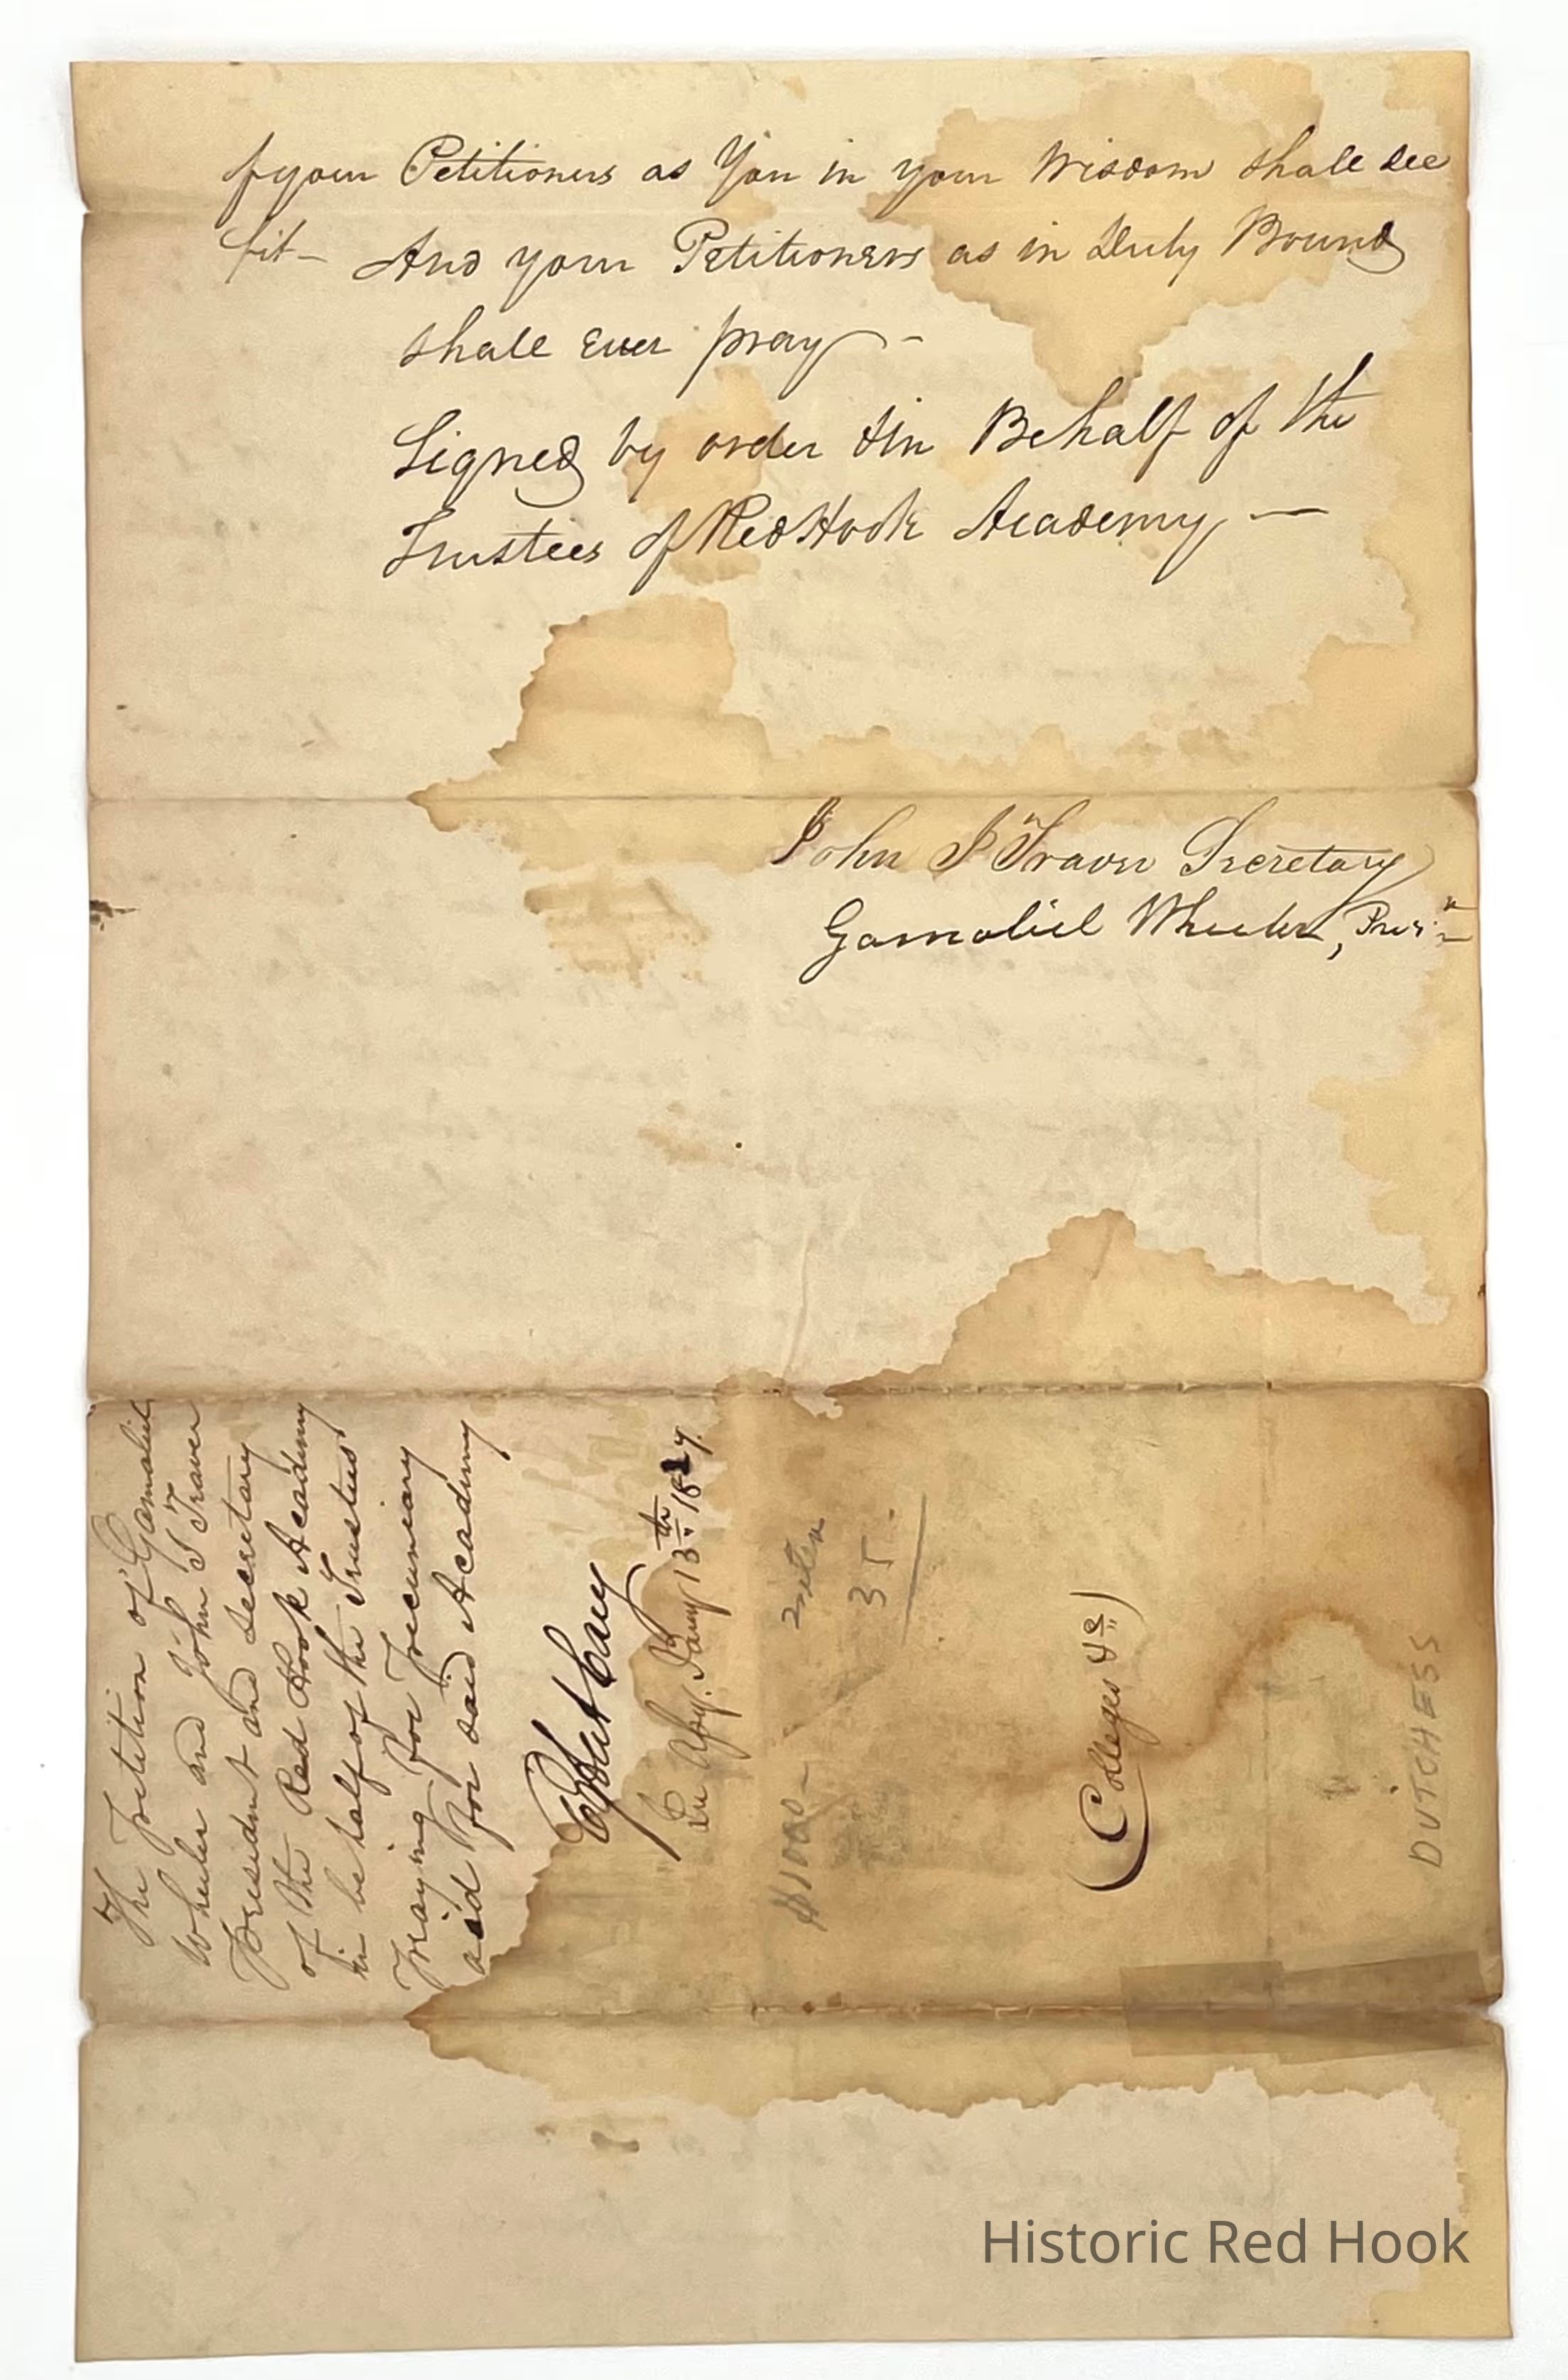 of your Petitioners as You in your Wisdom shall see
fit— And your Petitioners as in Duty Bound
shall ever pray —
Signed by order & in Behalf of the
Trustees of Red Hook Academy —
John I Traver Secretary
Gamaliel Wheeler, Presi
The Petition of Gamaliel
Wheeler and John I Traver
President and Secretary
of the Red Hook Academy
in behalf of the Trustees
Praying for Pecuniary
aid for said Academy
In Assy. Jany 13th 1827.
$1000 —
35
Colleges &c
DUTCHESS
Historic Red Hook